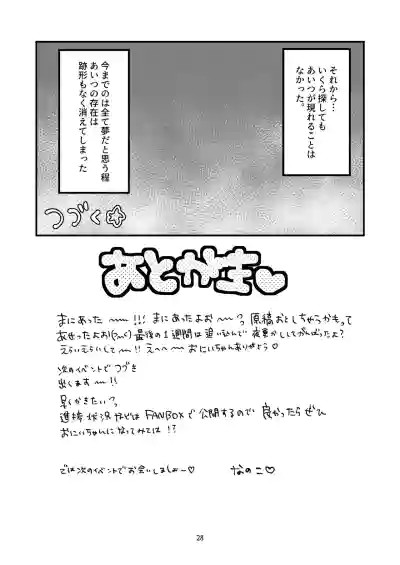 それから…
いくら探しても
あいつが現れることは
なかった。
今までのは全て夢だと思う程
あいつの存在は
跡形もなく消えてしまった
つづく☆
あとがき♡
まにあった〜〜!!! まにあったよお〜〜っ 原稿おとしちゃうかもって
あせったよお 最後の1週間は追い込んで夜更かししてがんばったよ?
えらいえらいして〜!! えへへ〜 おにいちゃんありがとう♡
次のイベントで つづき
出します〜!!
早くかきたいっ
進捗状況などは FANBOXで公開するので 良かったらぜひ
おにいちゃんになってみては!?
では次のイベントでお会いしましょー♡
なのこ♡
28